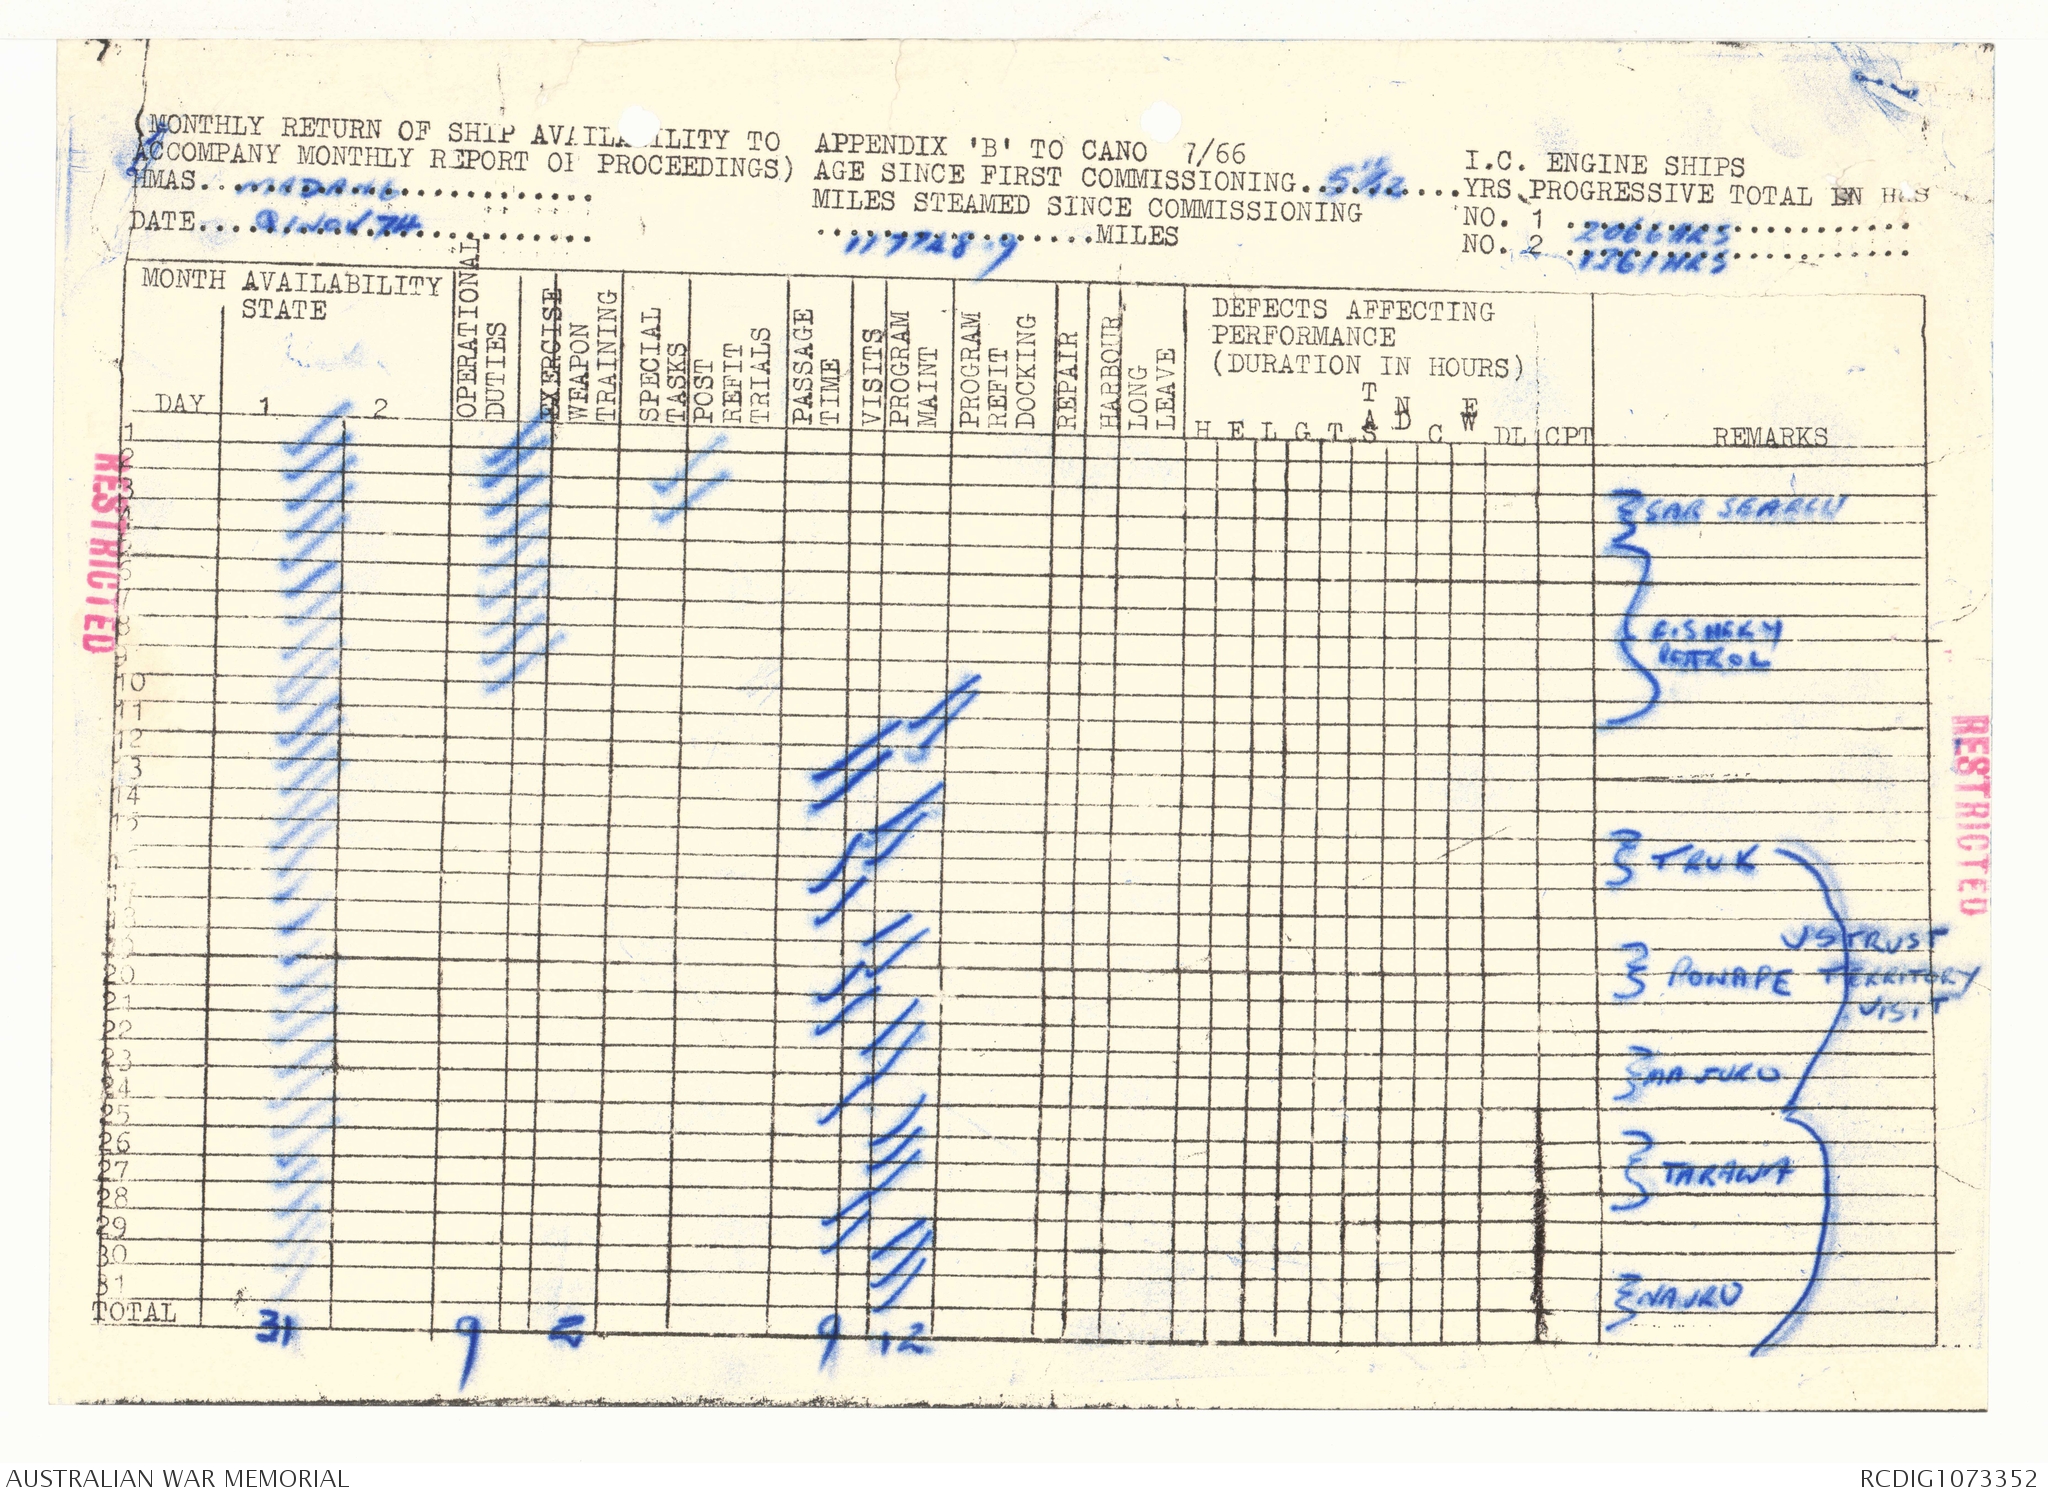 (MONTHLY RETURN OF SHIP AVAILABILITY TO
ACCOMPANY MONTHLY REPORT OF PROCEEDINGS)
HMAS....MADANG....................
DATE.............NOV 74....................
APPENDIX 'B' TO CANO 7/66
AGE SINCE FIRST COMMISSIONING...5 11/12...YRS
MILES STEAMED SINCE COMMISSIONING
...117728.9...MILES
I.C. ENGINE SHIPS
PROGRESSIVE TOTAL IN HRS
NO. 1 ...2066 HRS...
NO. 2 ...1361 HRS...
MONTH AVAILABILITY
STATE
DAY 1 2
OPERATIONAL
DUTIES
EXERCISE
WEAPON
TRAINING
SPECIAL
TASKS
POST
REFIT
TRIALS
PASSAGE
TIME
VISITS
PROGRAM
MAINT
PROGRAM
REFIT
DOCKING
REPAIR
HARBOUR
LONG
LEAVE
DEFECTS AFFECTING
PERFORMANCE
(DURATION IN HOURS)
H E L G T TAS ND C WE DL CPT
REMARKS
1
2
3
4
5
6
7
8
9
10
11
12
13
14
15
16
17
18
19
20
21
22
23
24
25
26
27
28
29
30
31
TOTAL 31 9 2 9 12
SAR SEARCH
FISHERY
PATROL
TRUK
PONAPE
MAJURO
US TRUST
TERRITORY
VISIT
TARAWA
NAURU
RESTRICTED
RESTRICTED
AUSTRALIAN WAR MEMORIAL
RCDIG1073352